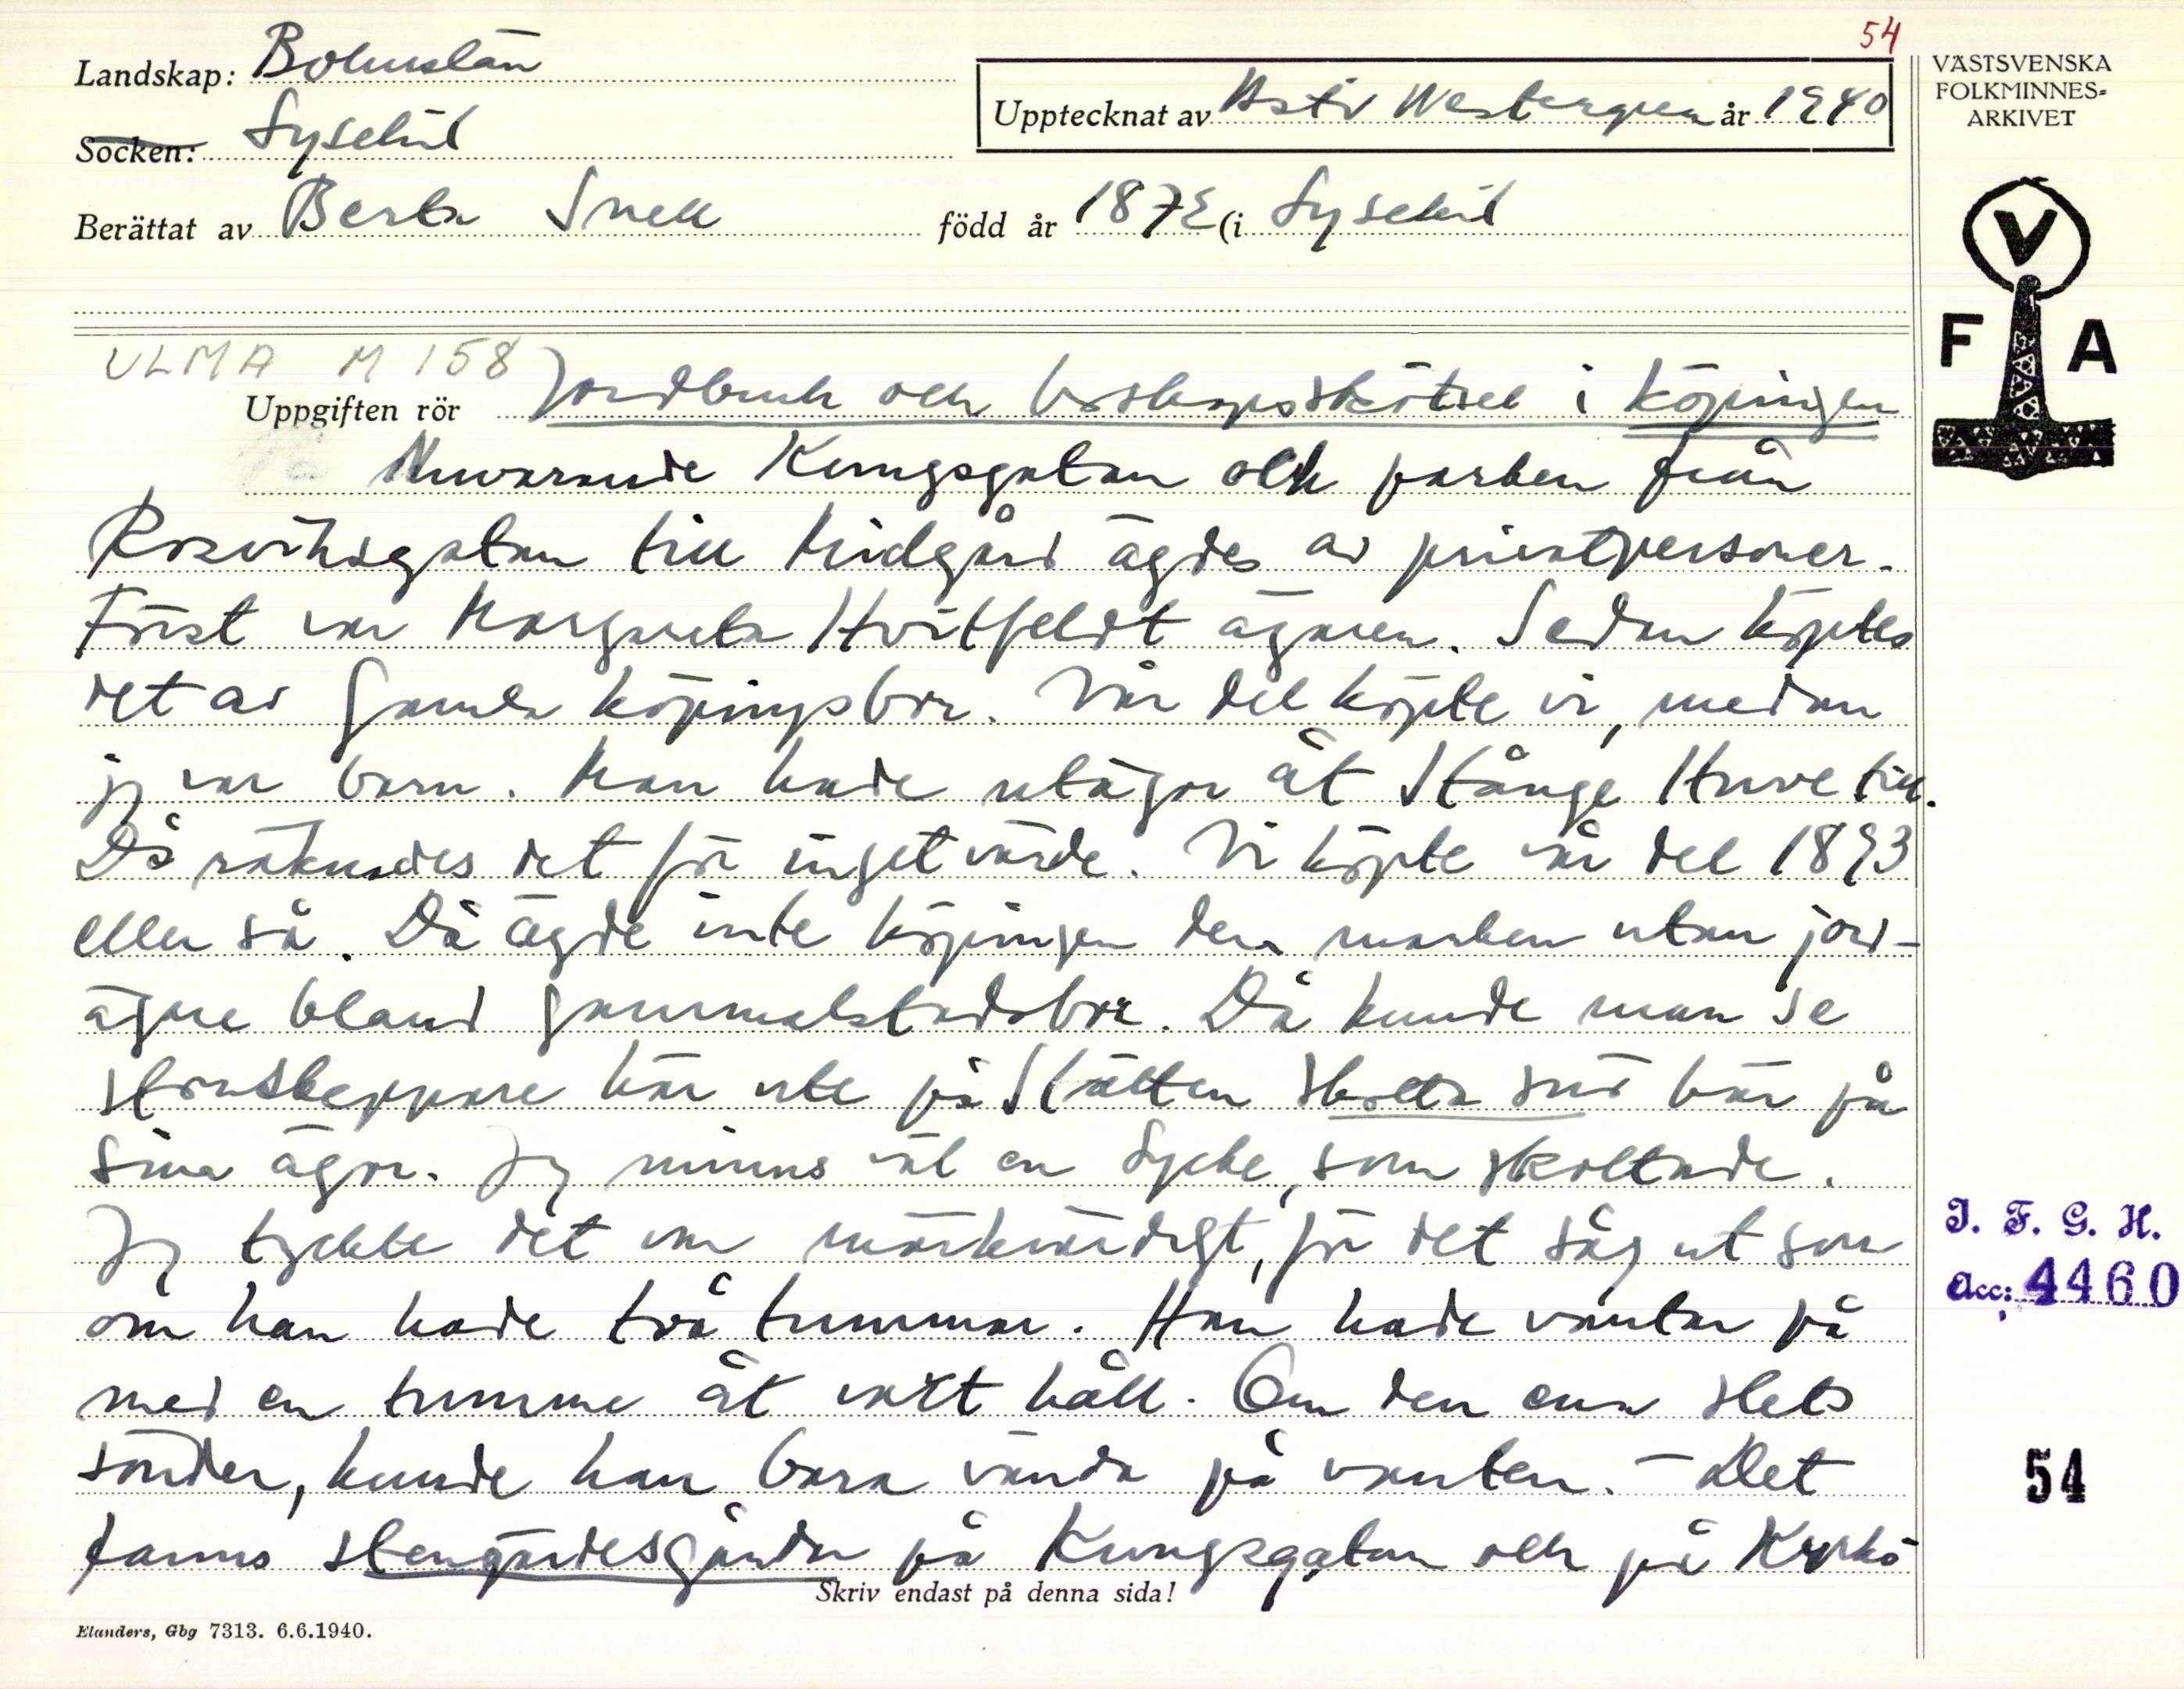 54
Landskap: Bohuslän
Socken: Lysekil
Upptecknat av Astrid Westergren år 1940
Berättat av Berta Snell född år 1878 (i Lysekil
VÄSTSVENSKA
FOLKMINNES-
ARKIVET
V
F A
ULMA M 158
Uppgiften rör Jordbruk och boskapsskötsel i köpingen
Nuvarande Kungsgatan och parken från
Rosviksgatan till Midgård ägdes av privatpersoner.
Först var Margareta Hvitfeldt ägaren. Sedan köptes
det av gamla köpingsbor. Vår del köpte vi, medan
jag var barn. Man hade utägor åt Stånge Huve till.
Då räknades det för inget värde. Vi köpte vår del 1893
eller så. Då ägde inte köpingen den marken utan jord-
ägare bland gammalstadsbor. Då kunde man se
storskeppare här ute på Slätten skotta snö här på
sina ägor. Jag minns väl en Lycke, som skottade.
Jag tyckte det var märkvärdigt, för det såg ut som
om han hade två tummar. Han hade vantar på
med en tumme åt vart håll. Om den ena slets
sönder, kunde han bara vända på vanten. – Det
fanns stengärdesgårdar på Kungsgatan och på Kyrko
Skriv endast på denna sida!
Elanders, Gbg 7313. 6.6.1940.
I. F. G. H.
Acc: 4460
54